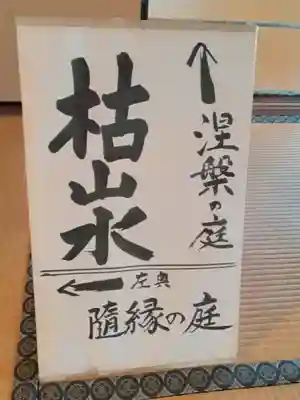 ↑涅槃の庭
枯山水
← 左奥
隨縁の庭